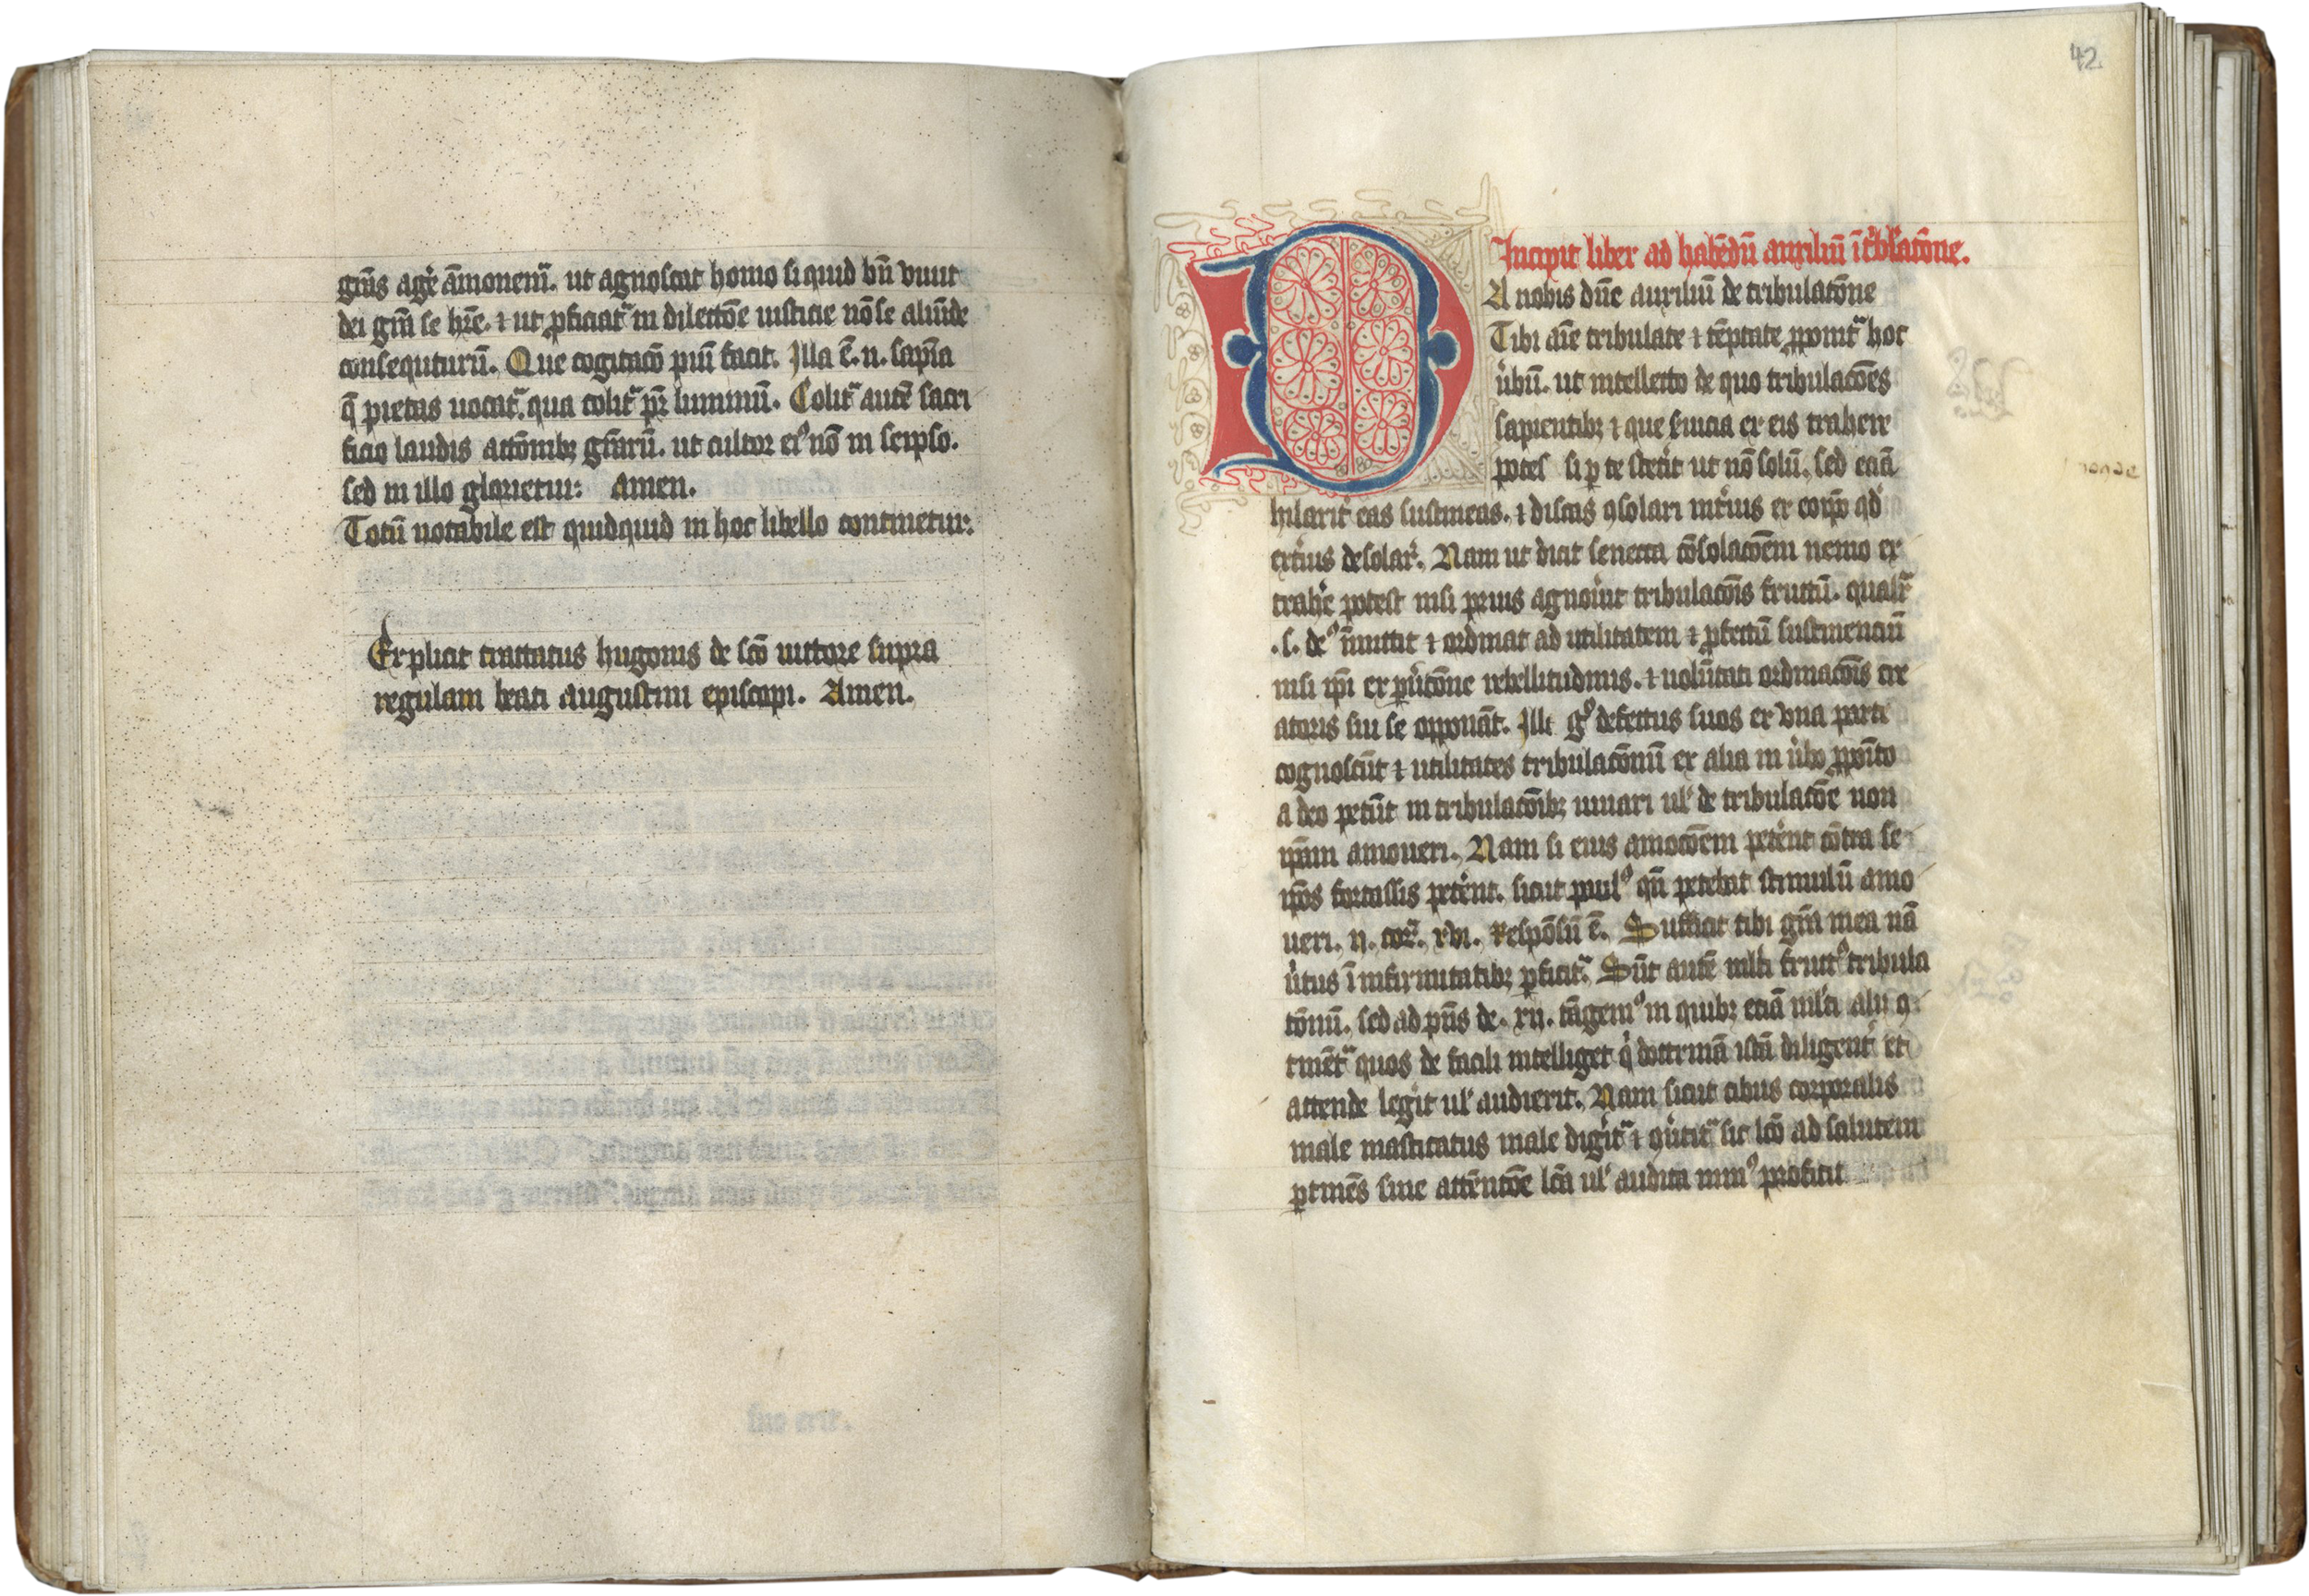 gr̄as agẽ āmonem̃. ut agnoscat homo si quid bn̄ viuit
dei gr̄a se hr̄e. ⁊ ut ꝓficiat᷑ in dilectōe iusticie nō se aliūde
consequturū. Que cogitacō piū facit. Illa ē. n. sapīa
q̄ pietas uocat᷑. qua colit᷑ pr̄ luminū. Colit᷑ autē sacri
ficio laudis actōnibꝫ gr̄arū. ut cultor eiꝰ nō in seipso.
sed in illo glorietur: Amen.
Totū notabile est quidquid in hoc libello continetur:
Explicit tractatus hugonis de sc̄o uictore supra
regulam beati augustini episcopi. Amen.
42
Incipit liber ad habēdū auxiliū ī t̾bl̾atōne.
DA nobis dn̄e auxiliū de tribulatōne
Tibi aīe tribulate ⁊ tēptate ꝓponit᷑ hoc
u̾bū. ut intellecto de quo tribulacōes
sapientibꝫ ⁊ que ex eis trahere
potes si ꝑ te stet̾it ut nō solū. sed eciā
hilarit̾ eas sustineas. ⁊ discas ꝯsolari int̾ius ex eo qd̾
ext̾ius desolar̾. Nam ut dicit seneca cōsolacōem nemo ex
trah̾e potest nisi prius agnou̾it tribulacōis fructū. qualit᷑
.s. deꝰ īmittit ⁊ ordinat ad utilitatem ⁊ ꝓfectū sustinenciū
nisi ip̄i ex rebellitudinis. ⁊ uolūtati ordinacōis cre
atoris sui se opponāt. Illi gͦ defectus suos ex vna parte
cognoscūt ⁊ utilitates tribulacōnū ex alia in u̾bo ꝓpōito
a deo petūt in tribulacōibꝫ iuuari ul̾ de tribulacōe non
ip̄am amoueri. Nam si eius amocōem pet̾ent cōtra se
ip̄os fortassis pet̾ent. sicut paulꝰ qn̄ petebat stimulū amo
ueri. ij. cor᷑. xij. Respōsū ē. Sufficit tibi gr̄a mea nā
u̾tus ī infirmitatibꝫ ꝑficit᷑. Sūt autē ml̾ti fructꝰ tribula
cōnū. sed ad p̄ns de. xij. tāgemꝰ in quibꝫ eciā ml̾ti alij ꝯ
tinēt᷑ quos de facili intelliget q̾ doctrinā istā diligent̾ et
attende leg̾it ul̾ audierit. Nam sicut cibus corporalis
male masticatus male digit᷑ ⁊ sic lcō ad salutem
ꝑtinēs sine attētōe lc̄a ul̾ audita minꝰ proficit